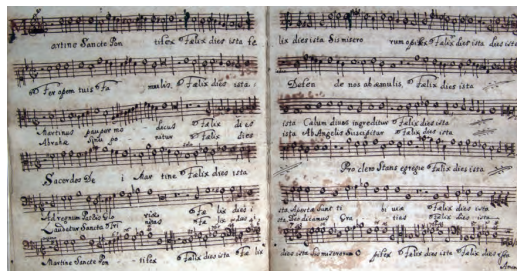 artine Sancte Pon tifex Fælix dies ista fæ
Fer opem tuis Fa mulis Fælix dies ista
Martinus pauper mo dicus Fælix dies
Abrahæ Sinu Fælix dies
Sacerdos De i Mar tine Fælix dies ista
Ad regnum Fæ lix dies
Laudetur Sancta Tri nitas Fæ lix dies
Martine Sancte Pon tifex Fælix dies ista Fæ lix
lix dies ista Sis misero rum opifex Fælix dies ista dies ista
Defen de nos ab æmulis, Fælix dies ista
ista Cælum dives ingreditur Fælix dies ista
ista Ab Angelis Suscipitur Fælix dies ista
Pro clero Stans egregie Fælix dies ista
ista Aperta sunt ti bi Fælix dies ista
ista Deo dicamus Gra tias Fælix dies ista
dies ista Sis miserorum O pifex Fælix dies ista Fælix dies
Amen